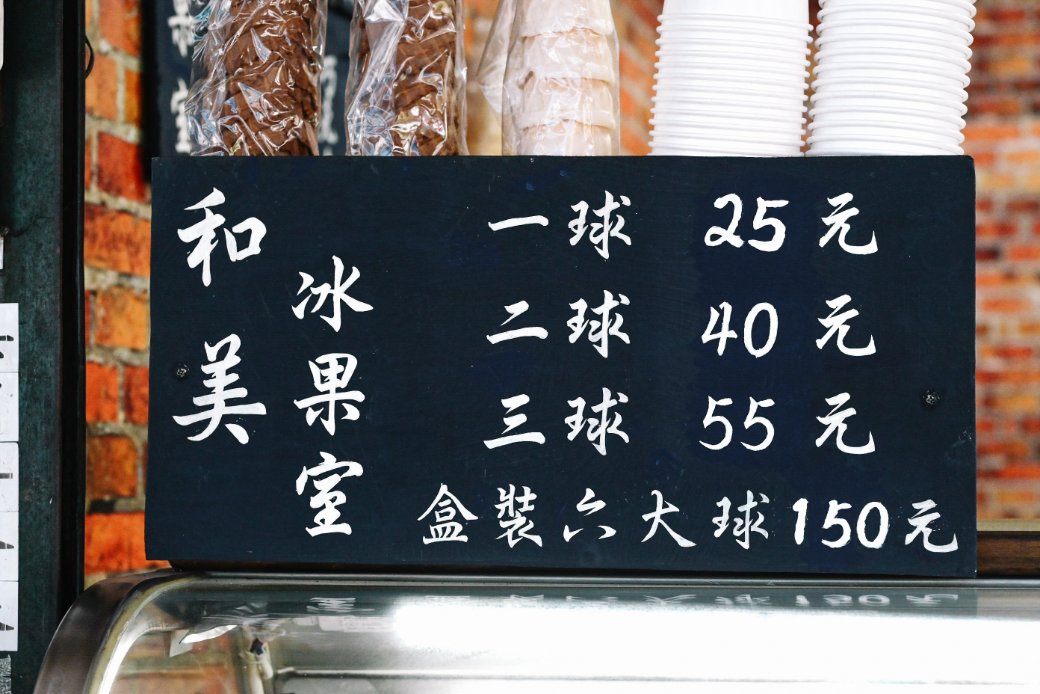 和美
冰果室
一球 25元
二球 40元
三球 55元
盒裝六大球150元